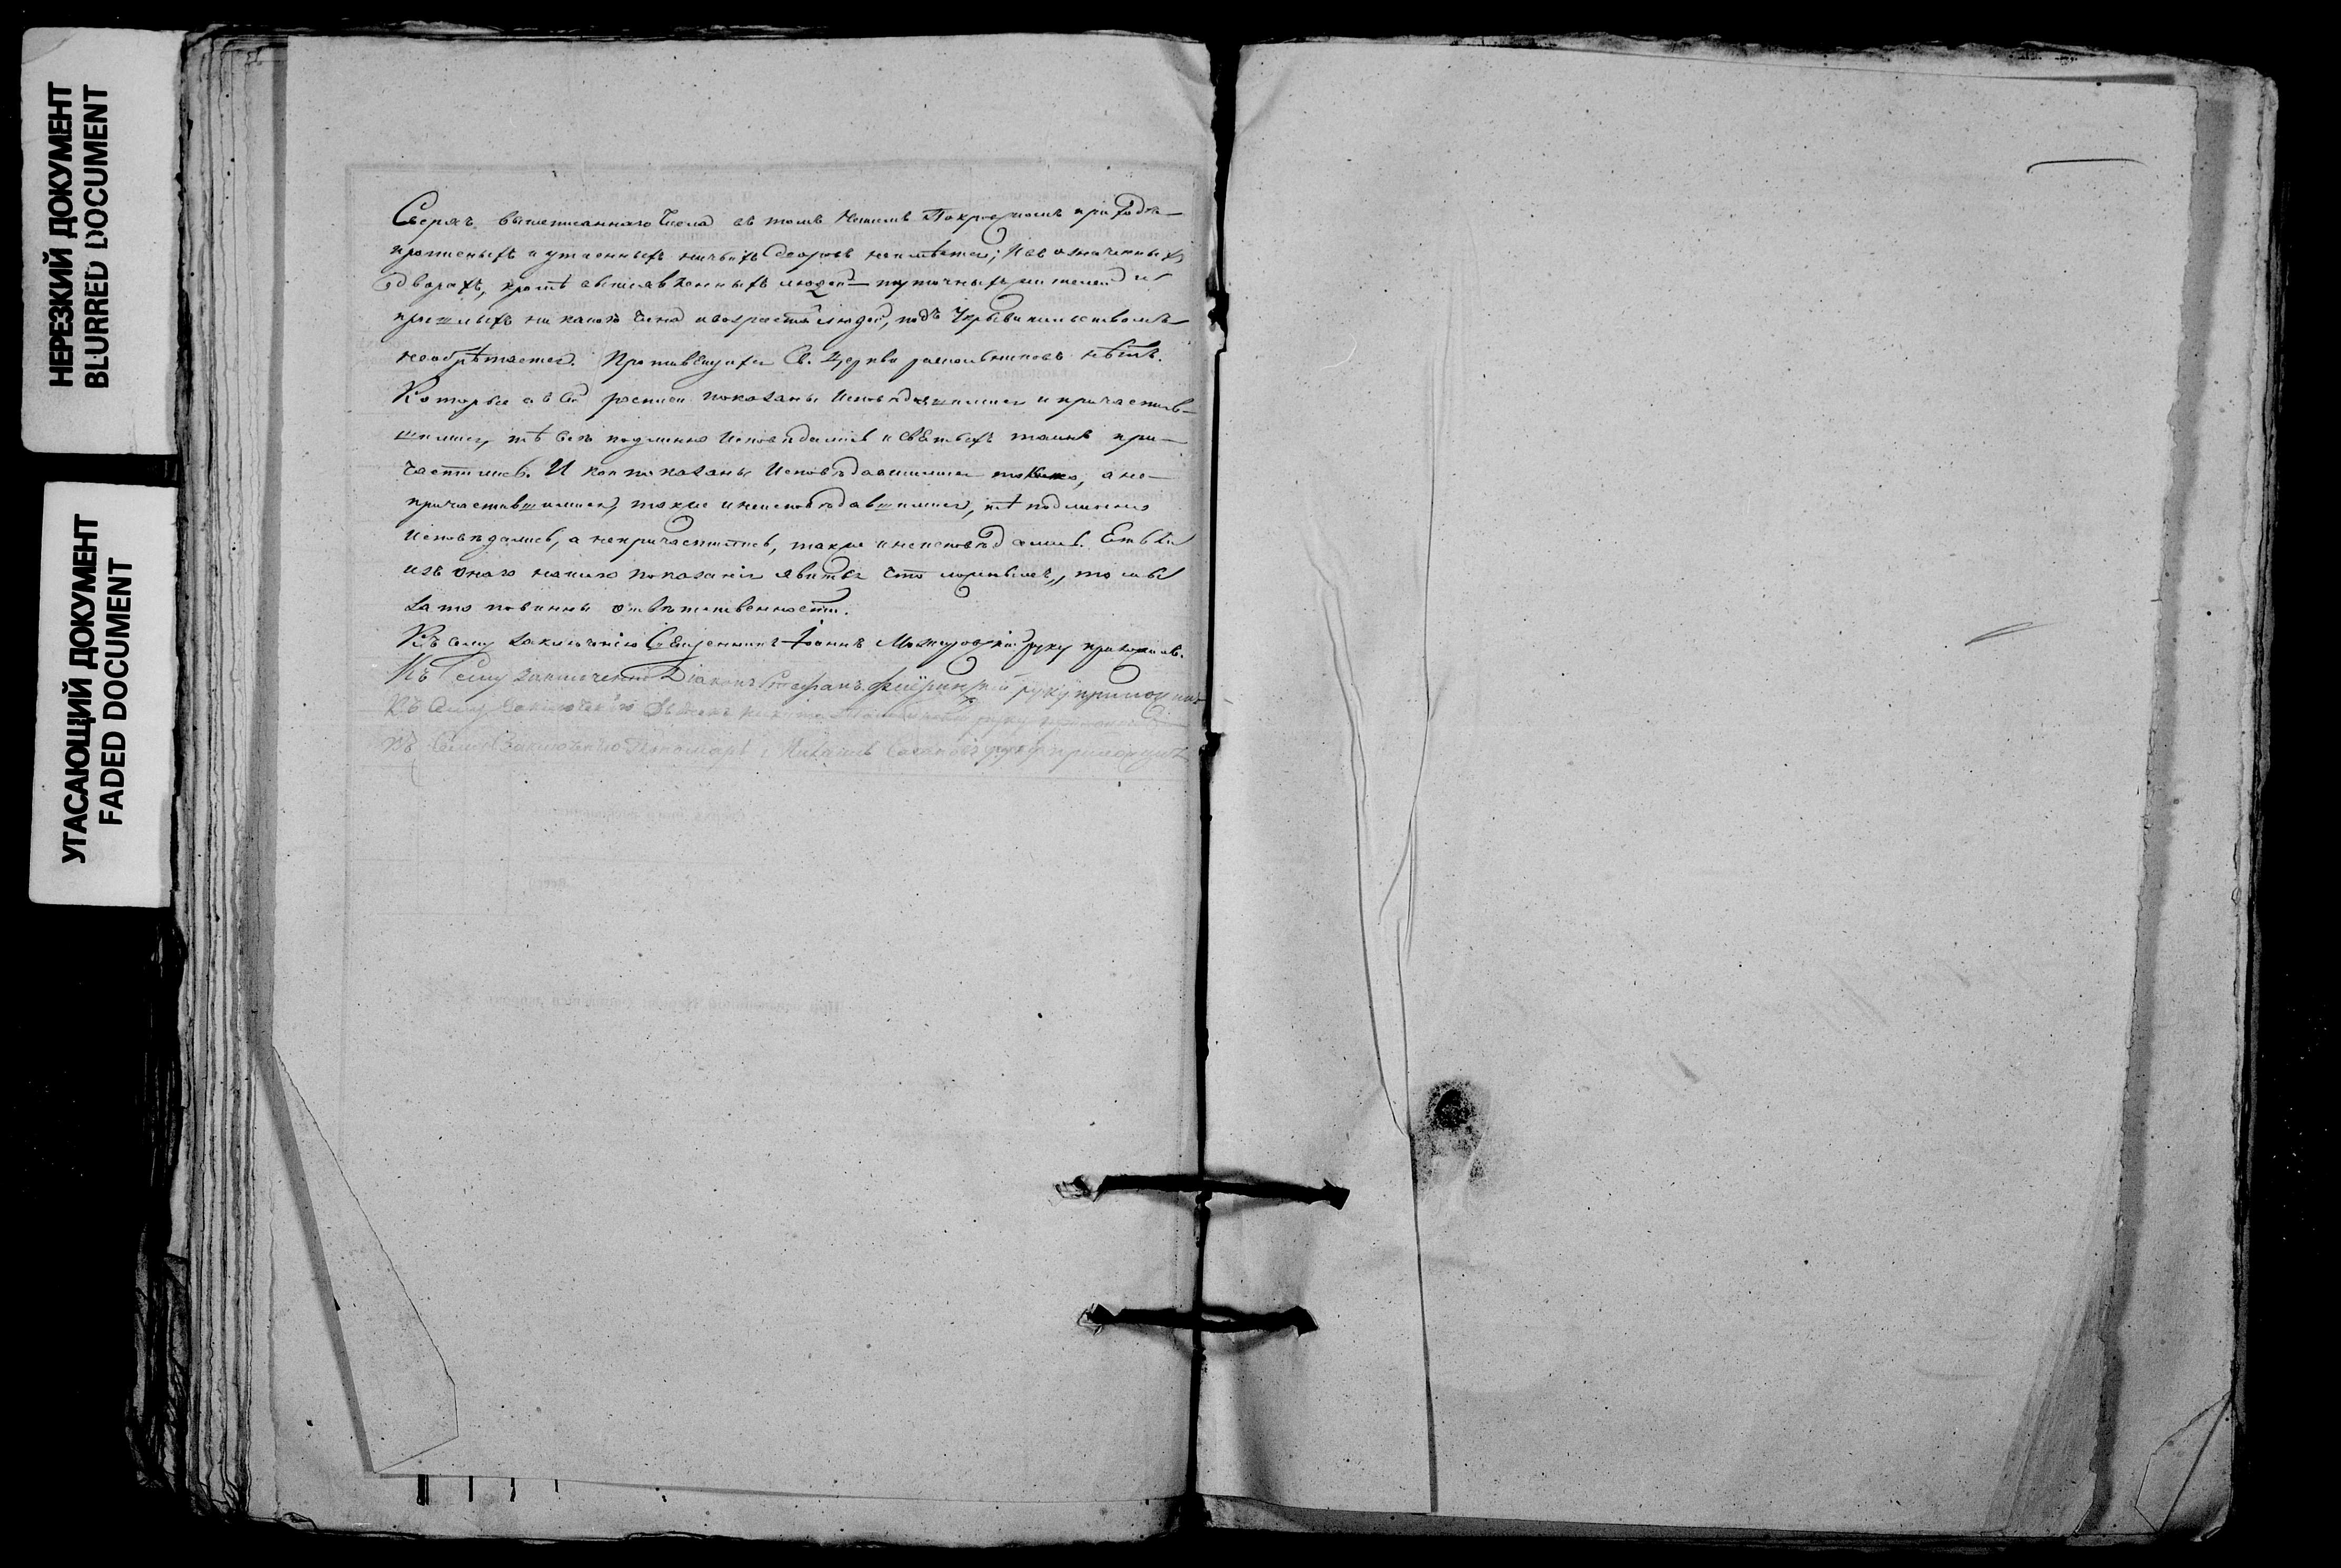 НЕРЕЗКИЙ ДОКУМЕНТ
BLURRED DOCUMENT
УГАСАЮЩИЙ ДОКУМЕНТ
FADED DOCUMENT
Сверхъ вышеписаннаго числа въ томъ нашемъ Покровскомъ приходѣ
и утаенныхъ ничьихъ дворовъ неимѣется; и въ означенныхъ
дворахъ, кромѣ людей
пришлыхъ никакого чина и возраста людей, подъ укрывательствомъ
необрѣтается. Противящихся Св. Церкви раскольниковъ нѣтъ.
Которые въ сей росписи показаны исповѣдавшимися и причастив-
шимися, тѣ всѣ подлинно исповѣдались и святыхъ таинъ при-
частились. И кои показаны исповѣдавшимися токмо, а не-
причастившимися, также и неисповѣдавшимися, тѣ подлинно
исповѣдались, а непричастились, также и неисповѣдались. Естьли
изъ онаго нашего показанія явится что ложнымъ, то мы
за то повинны отвѣтственности.
Къ сему заключенію Священникъ Іоаннъ руку приложилъ.
Къ сему заключенію Діаконъ Стефанъ руку приложилъ
Къ сему заключенію руку
Къ сему заключенію Пономарь руку приложилъ